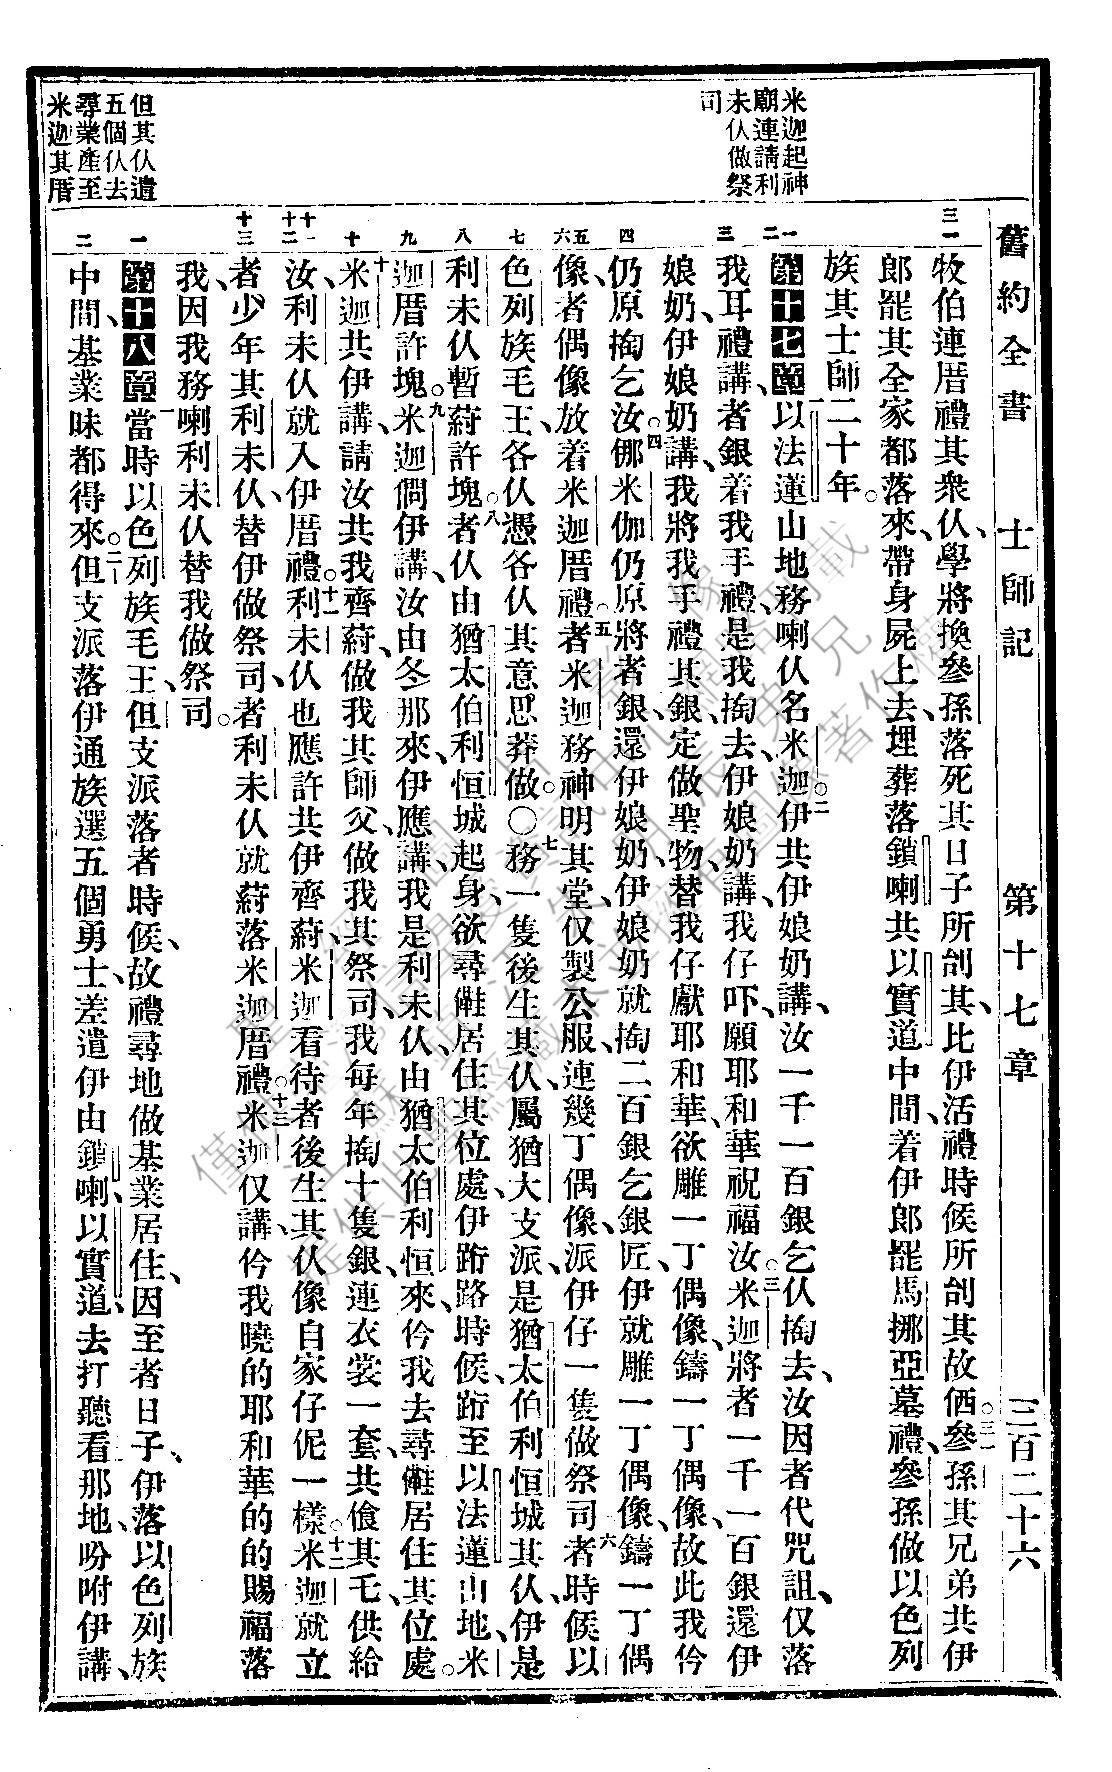 舊約全書 士師記 第十七章 三百二十六
米迦起神
廟連請利
未仫做祭
司
但其仫遣
五個仫去
尋業產至
米迦其厝
三一
牧伯連厝禮其衆仫、學將換參孫落死其日子所刣其、比伊活禮時候所刣其故仯。三一參孫其兄弟共伊
郎罷其全家都落來、帶身屍上去、埋葬落鎖喇共以實道中間、着伊郎罷馬挪亞墓禮、參孫做以色列
族其士師二十年。
一 二 三
第十七章 一以法蓮山地務喇仫名米迦。二伊共伊娘奶講、汝一千一百銀乞仫掏去、汝因者代咒詛、仅落
我耳禮講、者銀着我手禮、是我掏去、伊娘奶講、我仔吓、願耶和華祝福汝。三米迦將者一千一百銀還伊
娘奶、伊娘奶講、我將我手禮其銀、定做聖物、替我仔獻耶和華、欲雕一丁偶像、鑄一丁偶像、故此我仱
四 五 六 七 八 九 十 十一 十二 十三
仍原掏乞汝。四米伽仍原將者銀還伊娘奶、伊娘奶就掏二百銀乞銀匠、伊就雕一丁偶像、鑄一丁偶
像、者偶像放着米迦厝禮。五者米迦務神明其堂、仅製公服、連幾丁偶像、派伊仔一隻做祭司。六者時候以
色列族毛王、各仫憑各仫其意思莽做。〇七務一隻後生其仫、屬猶大支派、是猶太伯利恒城其仫、伊是
利未仫、暫蔚許塊。八者仫由猶太伯利恒城起身、欲尋居住其位處、伊跨路時候、跨至以法蓮山地、米
迦厝許塊。九米迦問伊講、汝由冬那來、伊應講、我是利未仫、由猶太伯利恒來、仱我去尋居住其位處。
十米迦共伊講、請汝共我齊蔚、做我其師父、做我其祭司、我每年掏十隻銀、連衣裳一套、共飧其乇供給
汝、利未仫就入伊厝禮。十一利未仫也應許共伊齊蔚、米迦看待者後生其仫、像自家仔伲一樣。十二米迦就立
者少年其利未仫、替伊做祭司、者利未仫就蔚落米迦厝禮。十三米迦仅講、仱我曉的耶和華的的賜福落
我、因我務喇利未仫替我做祭司。
一 二
第十八章 一當時以色列族毛王、但支派落者時候、故禮尋地做基業居住、因至者日子、伊落以色列族
中間、基業昧都得來。二但支派落伊通族選五個勇士、差遣伊由鎖喇、以實道、去打聽看那地、吩咐伊講、